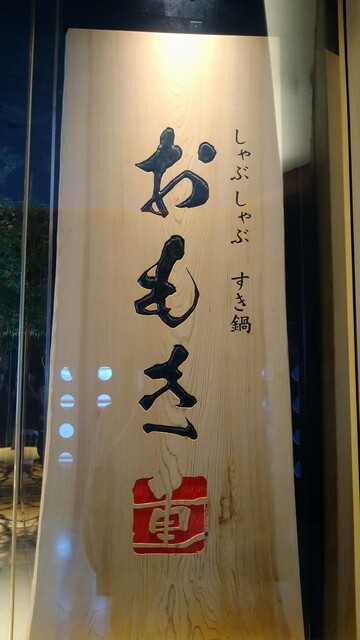 しゃぶしゃぶ すき鍋
おもき
重